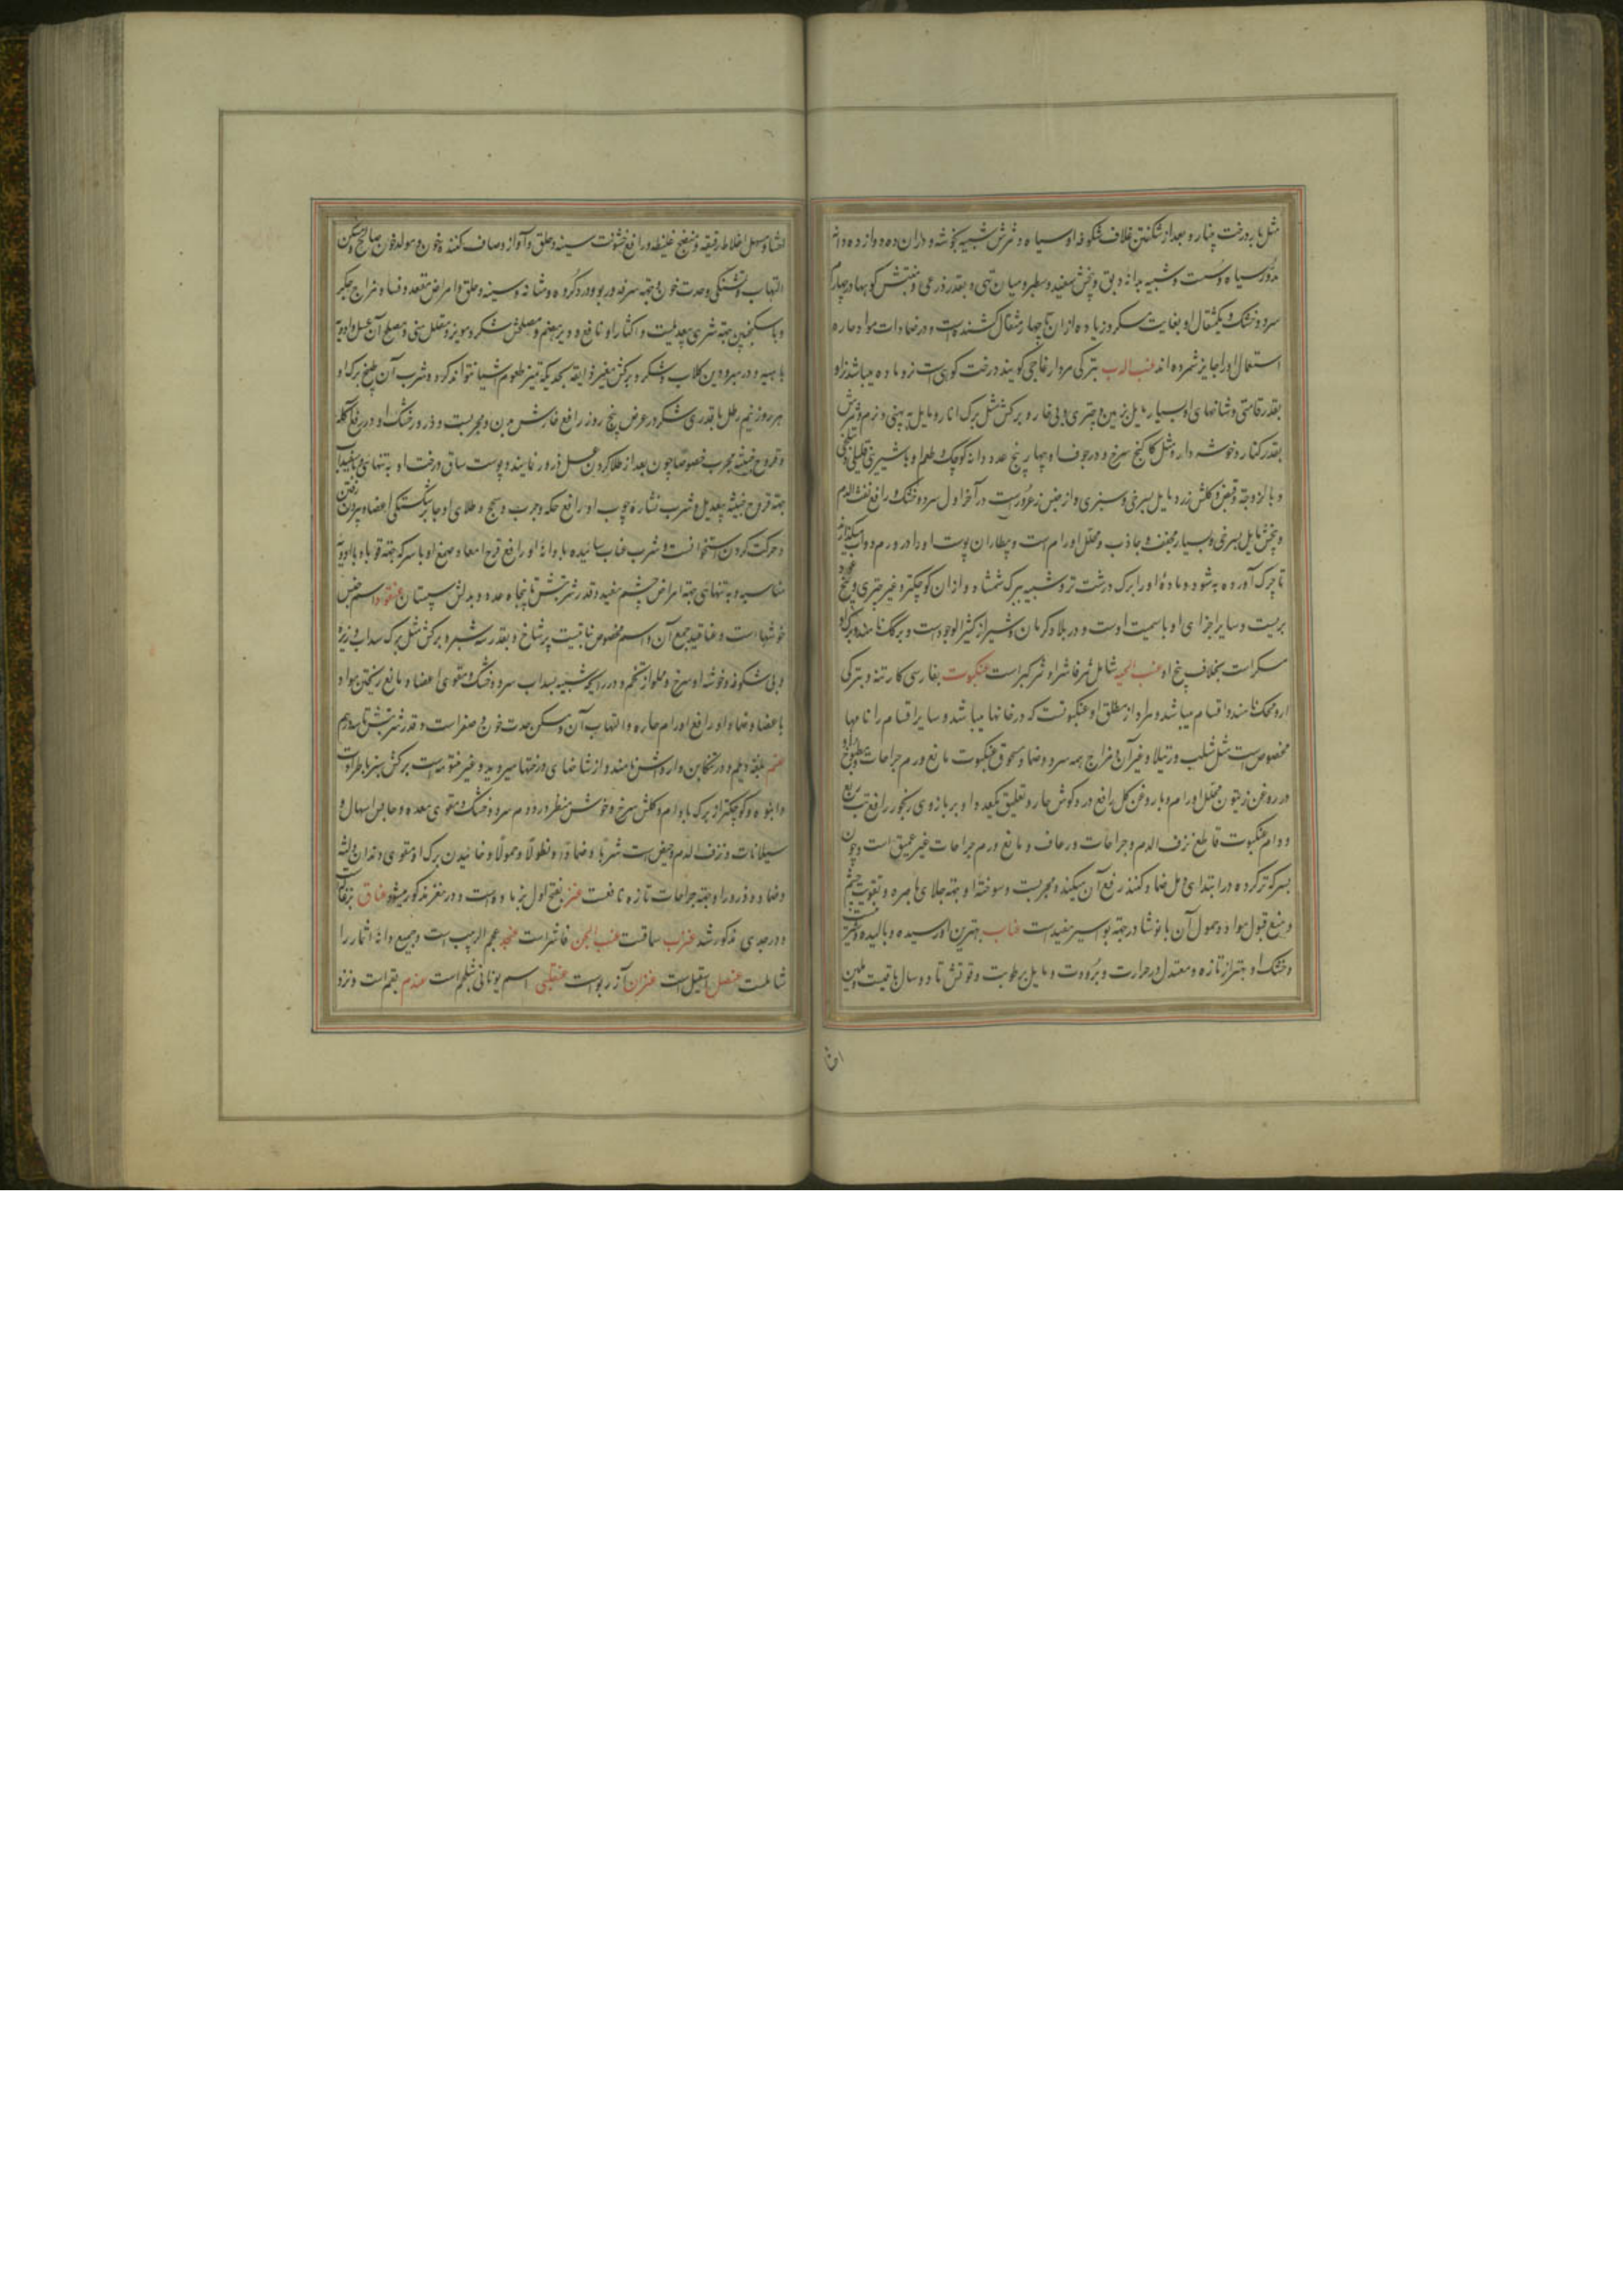 مثل بار درخت چنار و بعد از شکفتن غلاف شکوفه او سیاه و ثمرش شبیه بخوشه و در آن ده دوازده دانه
مدور سیاه و سست و شبیه بدانه و بیخش سفید و سطبر و میان تهی و بقدر ذرعی و منبتش کوهها در چهارم
سرد و خشک و یکمثقال او بغایت مسکر و زیاده از آن تا چهار مثقال کشنده است و در ضمادات مواد حاره
استعمال او را جایز شمرده اند عنب الدب بترکی مردار غاجی گویند درخت کوهی است نر و ماده میباشد نر او
بقدر قامتی و شاخهای او بسیار مایل بزمین و چتری و بی خار و برگش مثل برگ انار و مایل به پهنی و نرم و ثمرش
بقدر کنار و خوشه دار و مثل کاکنج سرخ و در جوف او چهار پنج عدد دانه کوچک و طعم او با شیرینی قلیلی و تلخی
و با لزوجة و قبض و گلش زرد مایل بسرخی و سبزی و از جنس زعرور است در آخر اول سرد و خشک و رافع نفث الدم
و بیخش مایل بسرخی و بسیار مجفف و جاذب و محلل اورام است و بیطاران پوست او را در ورم دواب میگذارند
تا چرک آورده به شود و ماده او را برگ درشت تر و شبیه ببرگ شمشاد و از آن کوچکتر و غیر چتری و بیخ
بریست و سایر اجزای او با سمیت اوست و در بلاد کرمان و شیراز کثیر الوجود است و برگ او
مسکر است بخلاف بیخ او عنب الحیه شامل ثمر فاشرا و ثمر کبر است عنکبوت بفارسی کارتنه و بترکی
ارومجک نامند و اقسام میباشد و مراد از مطلق او عنکبوتست که در خانها میباشد و سایر اقسام را نامها
مخصوص است مثل شبث و رتیلا و غیر آن و مزاج همه سرد و ضماد مسحوق عنکبوت مانع ورم جراحات و مطبوخ او
در روغن زیتون محلل اورام و با روغن گل رافع درد گوش حار و تعلیق یکعدد او بر بازوی رنجور رافع تب ربع
و دام عنکبوت قاطع نزف الدم و جراحات و رعاف و مانع ورم جراحات غیر عمیق است و چون
بسرکه تر کرده در ابتدای دمل ضماد کنند رفع آن میکند و مجربست و سوخته او جهة جلای باصره و تقویت چشم
و منع قبول مواد و حمول آن با نوشادر جهة بواسیر مفیدست عناب بهترین او رسیده و بالیده
و خشک او بهتر از تازه و معتدل در حرارت و برودت و مایل برطوبت و قوتش تا دو سال باقیست و ملین
احشا و مسهل اخلاط رقیقه و منضج غلیظه و رافع خشونت سینه و حلق و آواز و صاف کننده خون و مولد خون صالح و مسکن
التهاب و تشنگی و حدت خون و جهة سرفه و ربو و درد کرده و مثانه و سینه و حلق و امراض مقعد و فساد مزاج جگر
و با سکنجبین جهة شری بیعدیلست و اکثار او نافخ و دیر هضم و مصلحش شکر و مویز و مقلل منی و مصلح آن عسل و ادویه
باهیه و در مبرودین گلاب و شکر و برگش مغیر ذایقه بحدیکه تمیز طعوم اشیا نتواند کرد و شرب آب طبخ برگ او
هر روز نیم رطل با قدری شکر در عرض پنج روز رافع خارش بدن و مجربست و ذرور خشک او در رفع آکله
و قروح خبیثه مجرب خصوصا چون بعد از طلا کردن عسل ذرور نمایند و پوست ساق درخت او به تنهائی و با سفیداب
جهة قروح خبیثه بیعدیل و شرب نشاره چوب او رافع حکه و جرب و سحج و طلای او جابر شکستگی اعضا و بیرون رفتن
و حرکت کردن استخوانست و شرب عناب سائیده با دانه او رافع قرح امعا و صمغ او با سرکه جهة قوبا و با ادویه
مناسبه و به تنهائی جهة امراض چشم مفید و قدر شربتش تا پنجاه عدد و بدلش سپستان عنقود اسم جنس
خوشها است و عناقید جمع آن و اسم مخصوص نباتیست پر شاخ و بقدر شبر و برگش مثل برگ سداب و ریزه
و بی شکوفه و خوشه او سرخ و مملو از تخم و در رایحه شبیه بسداب سرد و خشک و مقوی اعضا و مانع ریختن مواد
باعضا و ضماد او رافع اورام حاره و التهاب آن و مسکن حدت خون و صفراست و قدر شربتش تا سه درم
عنم بلغه دیلم و در تنکابن دارواش نامند و از شاخهای درختها میروید و غیر منقوبه است برگش سبز با طراوت
و انبوه و کوچکتر از برگ بادام و گلش سرخ و خوش منظر در دوم سرد و خشک و مقوی معده و حابس اسهال و
سیلانات و نزف الدم و حیض است شربا و ضمادا و نطولا و حمولا و خائیدن برگ او مقوی دندان و لثه
و ضماد و ذرور او جهة جراحات تازه نافعست عنز بفتح اول بز ماده است و در معز مذکور میشود عناق بزغاله است
و در جدی مذکور شد عنزب سماقست عنب الجن فاشراست عنجد عجم الزبیب است و جمیع دانه اثمار را
شاملست عنصل اسقیل است عنزان آذربوست اسم یونانی شلغم است عندم بقم است و نزد